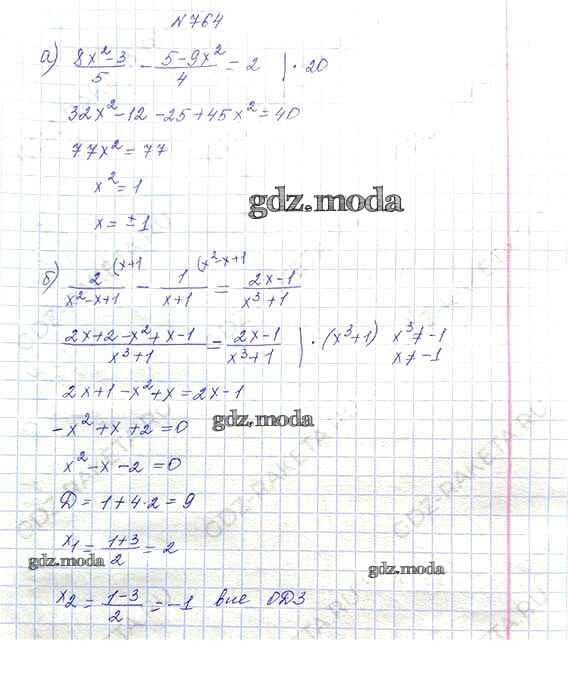 №764
а) (8x²-3)/5 - (5-9x²)/4 = 2 | · 20
32x² - 12 - 25 + 45x² = 40
77x² = 77
x² = 1
gdz.moda
x = ± 1
б) 2/(x²-x+1) (x+1 - 1/(x+1) (x²-x+1 = (2x-1)/(x³+1)
(2x+2-x²+x-1)/(x³+1) = (2x-1)/(x³+1) | · (x³+1) x³ ≠ -1
x ≠ -1
2x+1-x²+x = 2x-1
-x²+x+2=0
gdz.moda
x²-x-2=0
Д = 1+4·2 = 9
x₁ = (1+3)/2 = 2
gdz.moda
gdz.moda
x₂ = (1-3)/2 = -1 вне ОДЗ
GDZ-RAKETA.RU